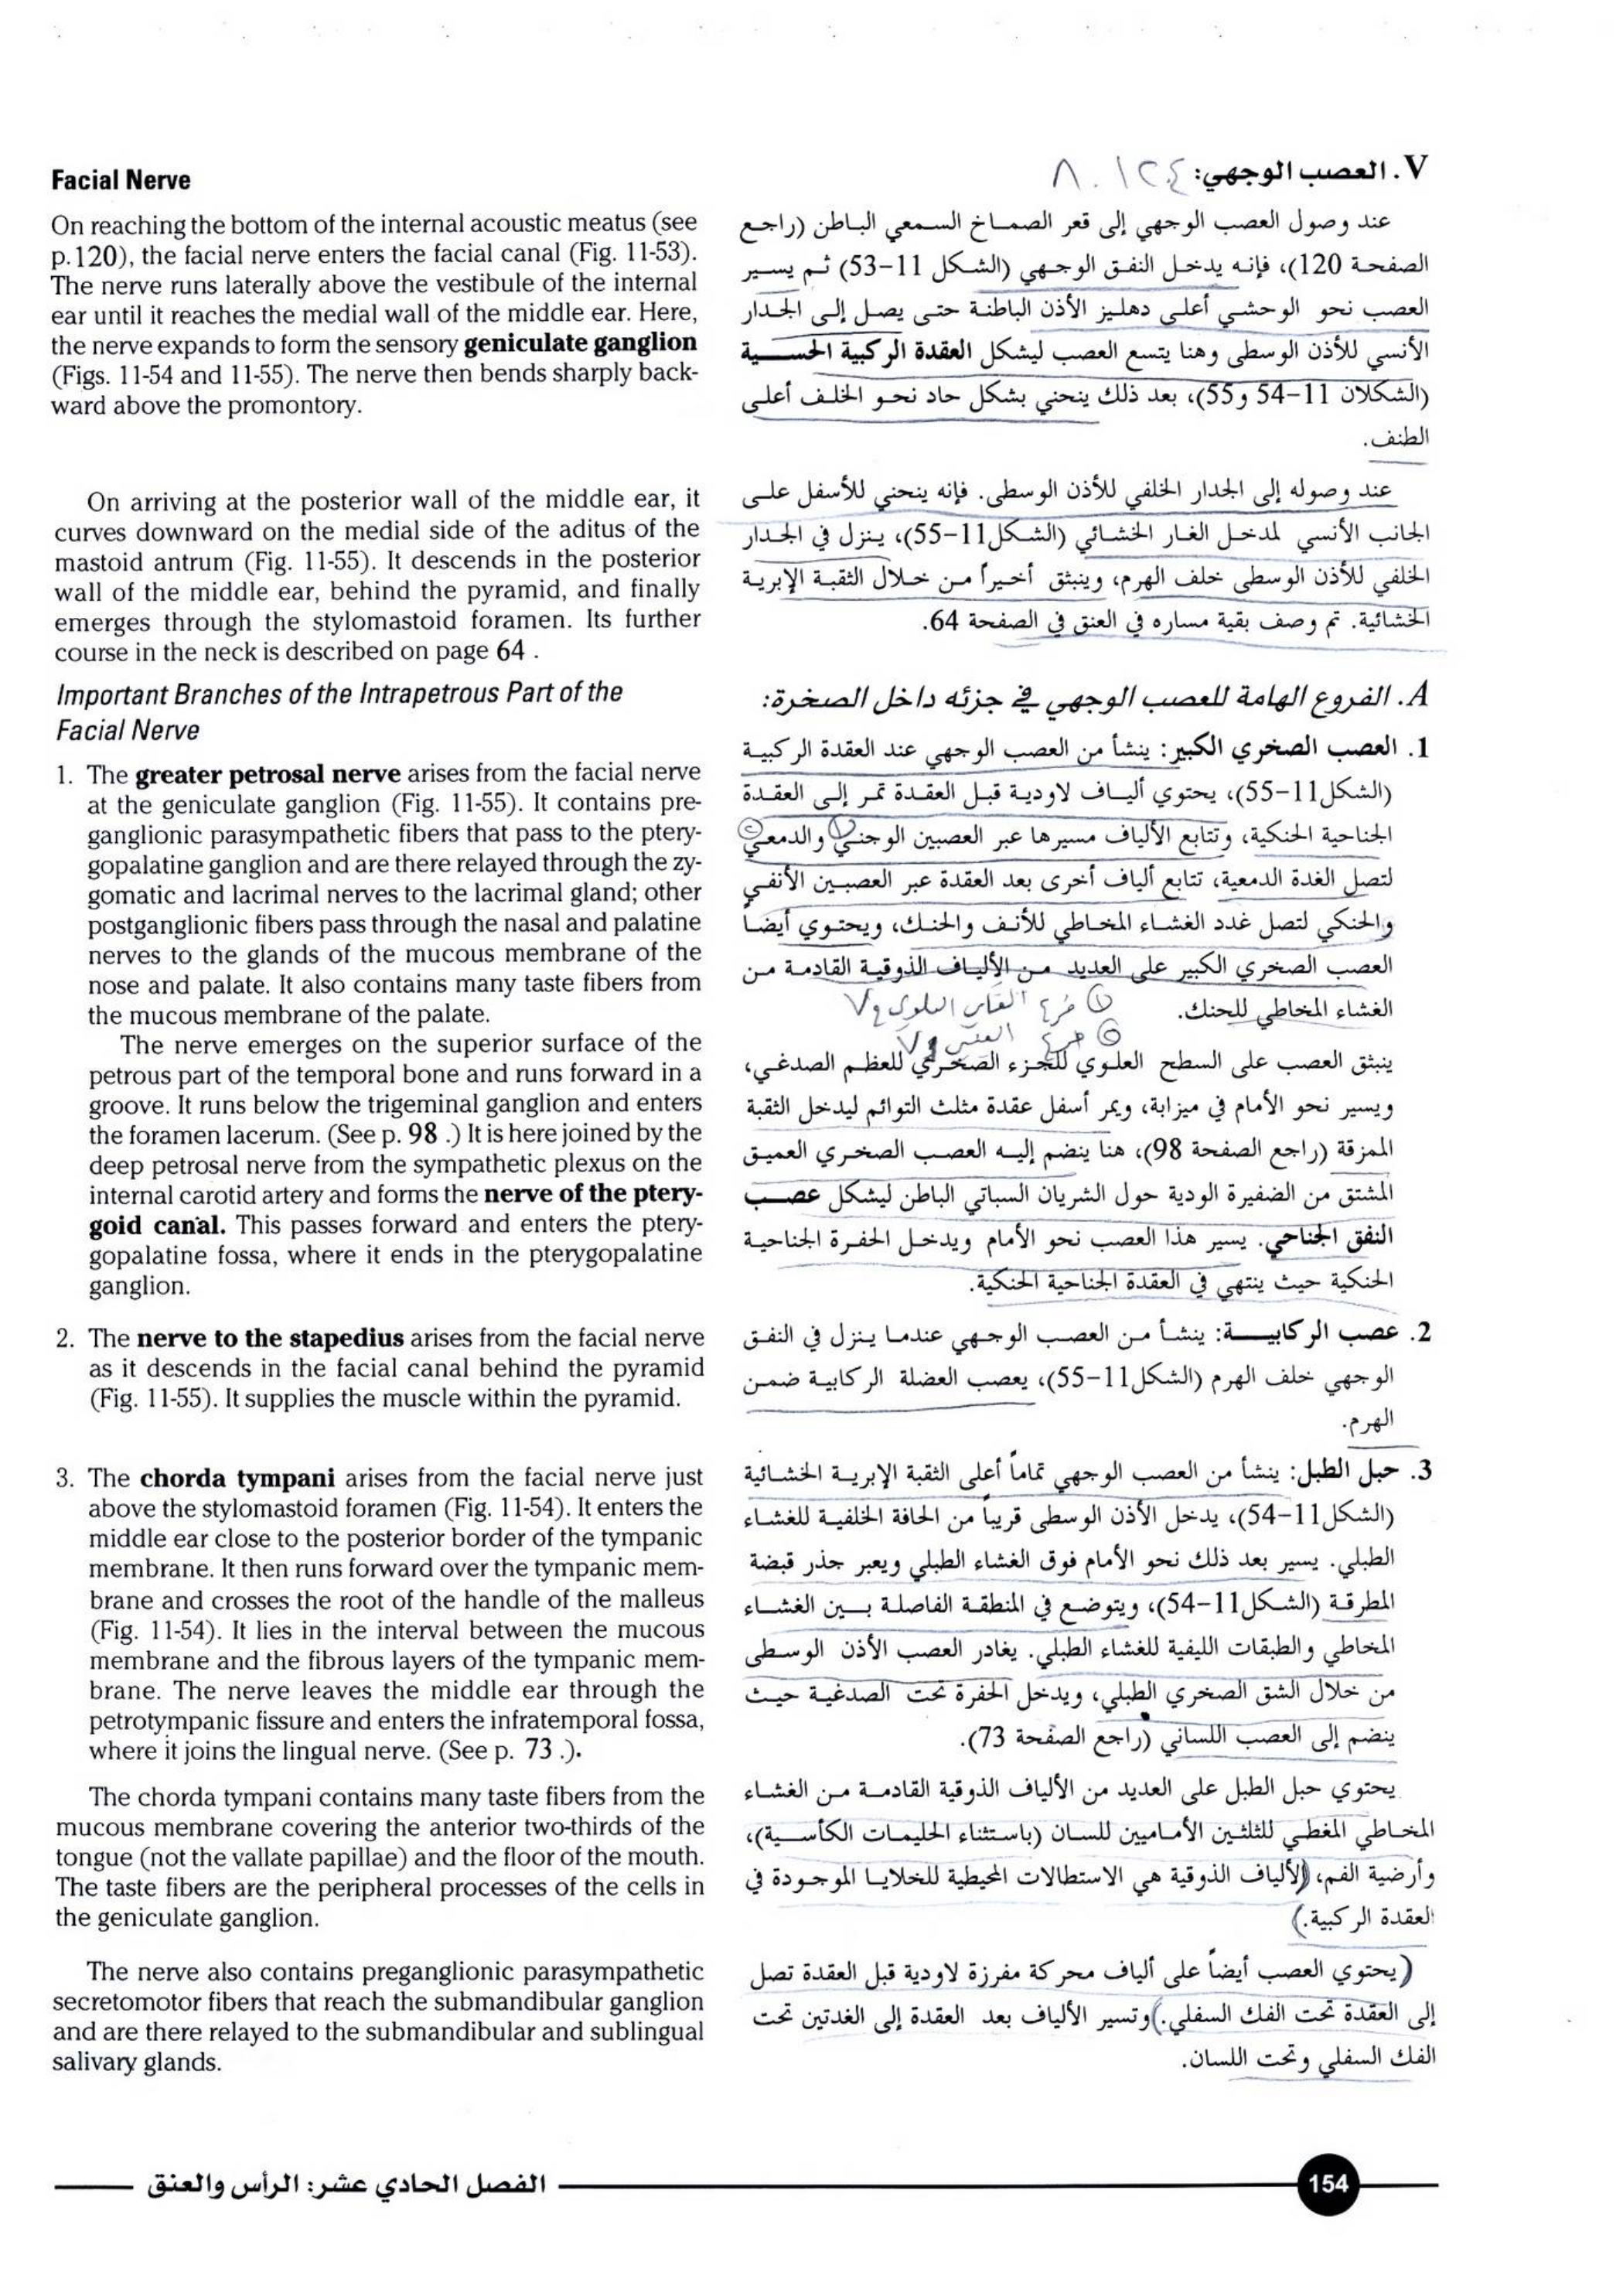 Facial Nerve
On reaching the bottom of the internal acoustic meatus (see
p.120), the facial nerve enters the facial canal (Fig. 11-53).
The nerve runs laterally above the vestibule of the internal
ear until it reaches the medial wall of the middle ear. Here,
the nerve expands to form the sensory geniculate ganglion
(Figs. 11-54 and 11-55). The nerve then bends sharply back-
ward above the promontory.
On arriving at the posterior wall of the middle ear, it
curves downward on the medial side of the aditus of the
mastoid antrum (Fig. 11-55). It descends in the posterior
wall of the middle ear, behind the pyramid, and finally
emerges through the stylomastoid foramen. Its further
course in the neck is described on page 64 .
Important Branches of the Intrapetrous Part of the
Facial Nerve
1. The greater petrosal nerve arises from the facial nerve
at the geniculate ganglion (Fig. 11-55). It contains pre-
ganglionic parasympathetic fibers that pass to the ptery-
gopalatine ganglion and are there relayed through the zy-
gomatic and lacrimal nerves to the lacrimal gland; other
postganglionic fibers pass through the nasal and palatine
nerves to the glands of the mucous membrane of the
nose and palate. It also contains many taste fibers from
the mucous membrane of the palate.
The nerve emerges on the superior surface of the
petrous part of the temporal bone and runs forward in a
groove. It runs below the trigeminal ganglion and enters
the foramen lacerum. (See p. 98 .) It is here joined by the
deep petrosal nerve from the sympathetic plexus on the
internal carotid artery and forms the nerve of the ptery-
goid canal. This passes forward and enters the ptery-
gopalatine fossa, where it ends in the pterygopalatine
ganglion.
2. The nerve to the stapedius arises from the facial nerve
as it descends in the facial canal behind the pyramid
(Fig. 11-55). It supplies the muscle within the pyramid.
3. The chorda tympani arises from the facial nerve just
above the stylomastoid foramen (Fig. 11-54). It enters the
middle ear close to the posterior border of the tympanic
membrane. It then runs forward over the tympanic mem-
brane and crosses the root of the handle of the malleus
(Fig. 11-54). It lies in the interval between the mucous
membrane and the fibrous layers of the tympanic mem-
brane. The nerve leaves the middle ear through the
petrotympanic fissure and enters the infratemporal fossa,
where it joins the lingual nerve. (See p. 73 .).
The chorda tympani contains many taste fibers from the
mucous membrane covering the anterior two-thirds of the
tongue (not the vallate papillae) and the floor of the mouth.
The taste fibers are the peripheral processes of the cells in
the geniculate ganglion.
The nerve also contains preganglionic parasympathetic
secretomotor fibers that reach the submandibular ganglion
and are there relayed to the submandibular and sublingual
salivary glands.
V. العصب الوجهي:
عند وصول العصب الوجهي إلى قعر الصماخ السمعي الباطن (راجع
الصفحة 120)، فإنه يدخل النفق الوجهي (الشكل 11-53) ثم يسير
العصب نحو الوحشي أعلى دهليز الأذن الباطنة حتى يصل إلى الجدار
الأنسي للأذن الوسطى وهنا يتسع العصب ليشكل العقدة الركبية الحسية
(الشكلان 11-54 و55)، بعد ذلك ينحني بشكل حاد نحو الخلف أعلى
الطنف.
عند وصوله إلى الجدار الخلفي للأذن الوسطى. فإنه ينحني للأسفل على
الجانب الأنسي لمدخل الغار الخشائي (الشكل11-55)، ينزل في الجدار
الخلفي للأذن الوسطى خلف الهرم، وينبثق أخيراً من خلال الثقبة الإبرية
الخشائية. تم وصف بقية مساره في العنق في الصفحة 64.
A. الفروع الهامة للعصب الوجهي في جزئه داخل الصخرة:
1. العصب الصخري الكبير: ينشأ من العصب الوجهي عند العقدة الركبية
(الشكل11-55)، يحتوي ألياف لاودية قبل العقدة تمر إلى العقدة
الجناحية الحنكية، وتتابع الألياف مسيرها عبر العصبين الوجني والدمعي
لتصل الغدة الدمعية، تتابع ألياف أخرى بعد العقدة عبر العصبين الأنفي
والحنكي لتصل غدد الغشاء المخاطي للأنف والحنك، ويحتوي أيضاً
العصب الصخري الكبير على العديد من الألياف الذوقية القادمة من
الغشاء المخاطي للحنك.
ينبثق العصب على السطح العلوي للجزء الصخري للعظم الصدغي،
ويسير نحو الأمام في ميزابة، ويمر أسفل عقدة مثلث التوائم ليدخل الثقبة
الممزقة (راجع الصفحة 98)، هنا ينضم إليه العصب الصخري العميق
المشتق من الضفيرة الودية حول الشريان السباتي الباطن ليشكل عصب
النفق الجناحي. يسير هذا العصب نحو الأمام ويدخل الحفرة الجناحية
الحنكية حيث ينتهي في العقدة الجناحية الحنكية.
2. عصب الركابية: ينشأ من العصب الوجهي عندما ينزل في النفق
الوجهي خلف الهرم (الشكل11-55)، يعصب العضلة الركابية ضمن
الهرم.
3. حبل الطبل: ينشأ من العصب الوجهي تماماً أعلى الثقبة الإبرية الخشائية
(الشكل11-54)، يدخل الأذن الوسطى قريباً من الحافة الخلفية للغشاء
الطبلي. يسير بعد ذلك نحو الأمام فوق الغشاء الطبلي ويعبر جذر قبضة
المطرقة (الشكل11-54)، ويتوضع في المنطقة الفاصلة بين الغشاء
المخاطي والطبقات الليفية للغشاء الطبلي. يغادر العصب الأذن الوسطى
من خلال الشق الصخري الطبلي، ويدخل الحفرة تحت الصدغية حيث
ينضم إلى العصب اللساني (راجع الصفحة 73).
يحتوي حبل الطبل على العديد من الألياف الذوقية القادمة من الغشاء
المخاطي المغطي للثلثين الأماميين للسان (باستثناء الحليمات الكأسية)،
وأرضية الفم، (الألياف الذوقية هي الاستطالات المحيطية للخلايا الموجودة في
العقدة الركبية.)
(يحتوي العصب أيضاً على ألياف محركة مفرزة لاودية قبل العقدة تصل
إلى العقدة تحت الفك السفلي.) وتسير الألياف بعد العقدة إلى الغدتين تحت
الفك السفلي وتحت اللسان.
الفصل الحادي عشر: الرأس والعنق
154